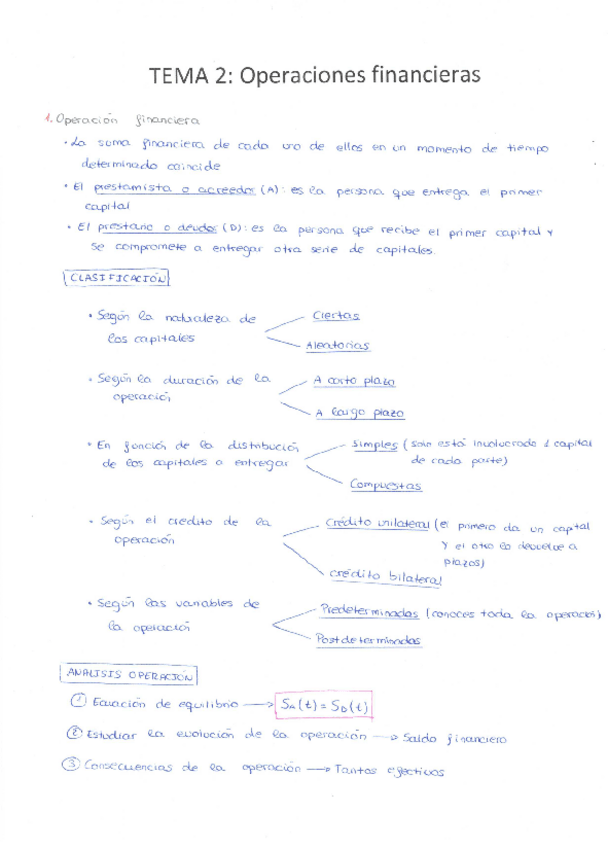 TEMA 2: Operaciones financieras
1. Operación financiera
· La suma financiera de cada uno de ellos en un momento de tiempo
determinado coincide
· El prestamista o acreedor (A): es la persona que entrega el primer
capital
· El prestario o deudor (D): es la persona que recibe el primer capital y
se compromete a entregar otra serie de capitales.
CLASIFICACIÓN
· Según la naturaleza de
los capitales
Ciertas
Aleatorias
· Según la duración de la
operación
A corto plazo
A largo plazo
· En función de la distribución
de los capitales a entregar
Simples (solo está involucrado 1 capital
de cada parte)
Compuestas
· Según el crédito de la
operación
Crédito unilateral (el primero da un capital
y el otro lo devuelve a
plazos)
crédito bilateral
· Según las variables de
la operación
Predeterminadas (conoces toda la operación)
Postdeterminadas
ANALISIS OPERACIÓN
① Ecuación de equilibrio → SA(t) = SD(t)
② Estudiar la evolución de la operación → Saldo financiero
③ Consecuencias de la operación → Tantos efectivos